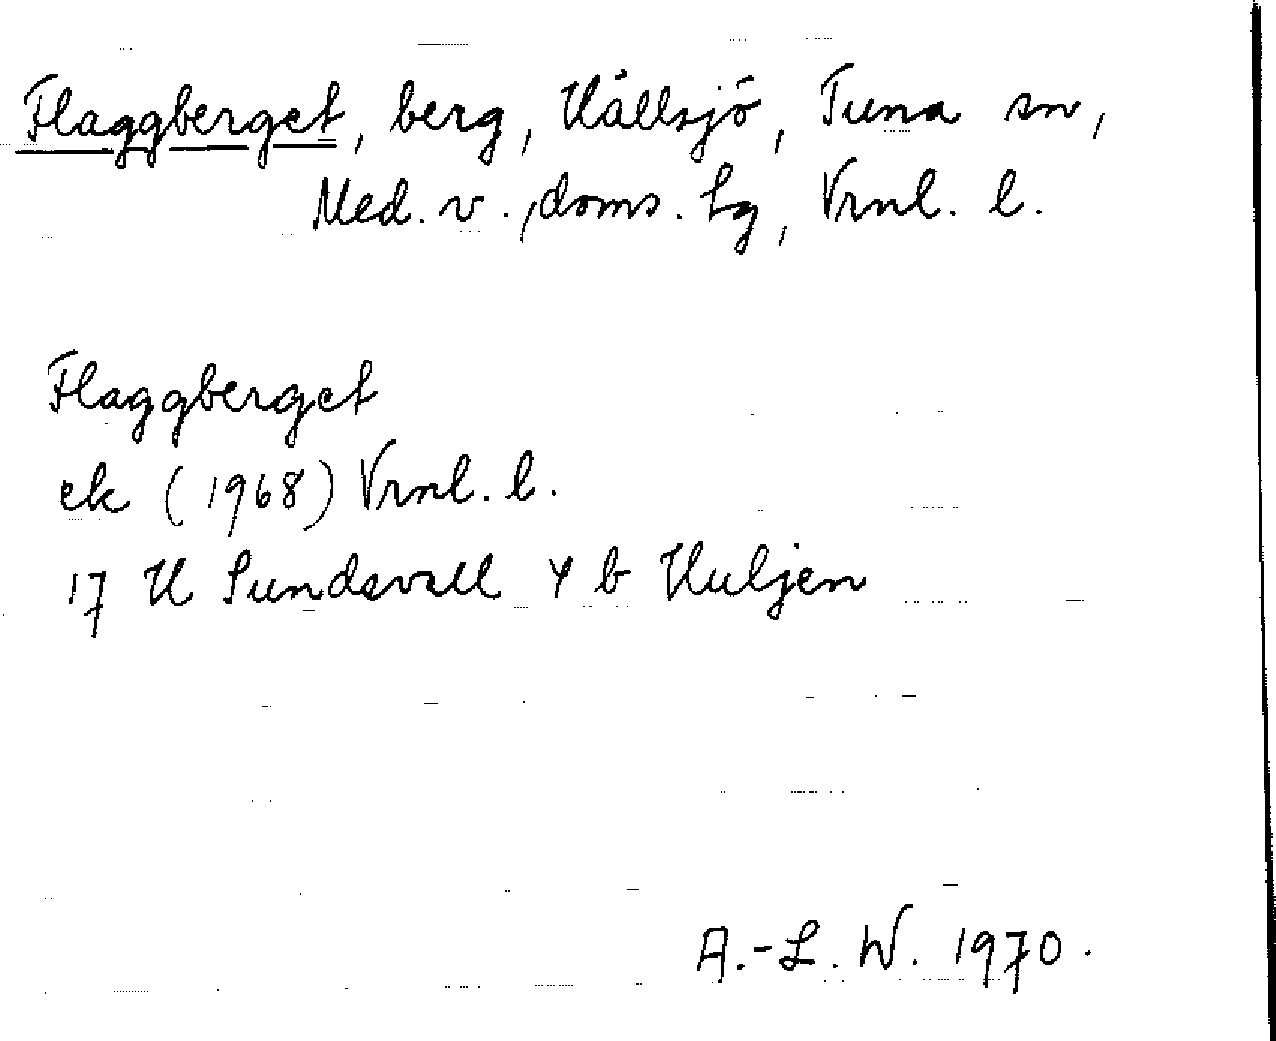 Flaggberget, berg, Hällsjö, Tuna sn,
Med. v., doms. hg, Vrnl. l.
Flaggberget
ek (1968) Vrnl. l.
17 H Sundsvall 4 b Huljen
A.-L. W. 1970.